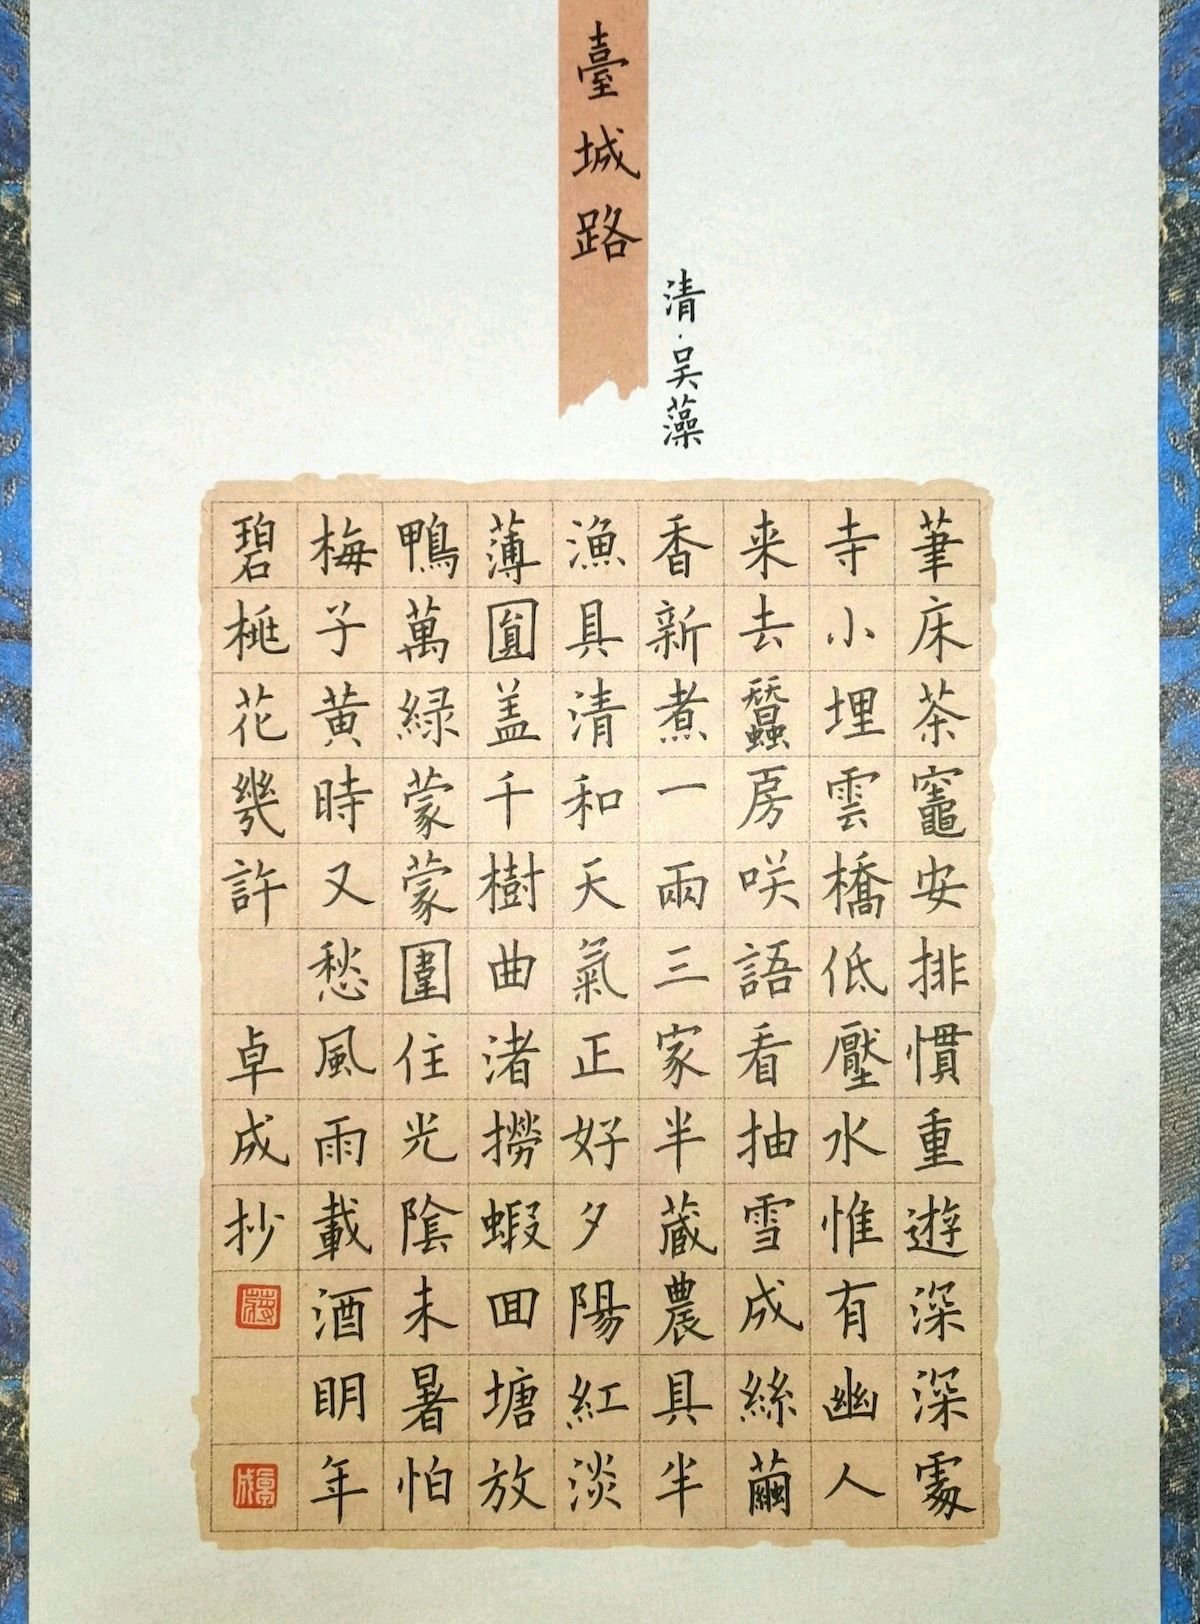 臺城路
清·吴藻
筆床茶竈安排慣重遊深深處
寺小埋雲橋低壓水惟有幽人
来去蠶房咲語看抽雪成絲繭
香新煮一兩三家半蔵農具半
漁具清和天氣正好夕陽紅淡
薄圓盖千樹曲渚撈蝦囬塘放
鴨萬綠蒙蒙圍住光陰未暑怕
梅子黄時又愁風雨載酒明年
碧桃花幾許
卓成抄